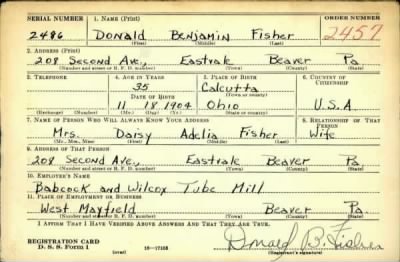 SERIAL NUMBER 1. NAME (Print) ORDER NUMBER
2486 Donald Benjamin Fisher 2457
(First) (Middle) (Last)
2. ADDRESS (Print)
208 Second Ave., Eastvale Beaver Pa
(Number and street or R. F. D. number) (Town) (County) (State)
3. TELEPHONE 4. AGE IN YEARS 5. PLACE OF BIRTH 6. COUNTRY OF CITIZENSHIP
35 Calcutta
DATE OF BIRTH (Town or county)
11 18 1904 Ohio U.S.A
(Exchange) (Number) (Mo.) (Day) (Yr.) (State or country)
7. NAME OF PERSON WHO WILL ALWAYS KNOW YOUR ADDRESS 8. RELATIONSHIP OF THAT PERSON
Mrs. Daisy Adelia Fisher Wife
(Mr., Mrs., Miss) (First) (Middle) (Last)
9. ADDRESS OF THAT PERSON
208 Second Ave., Eastvale Beaver Pa.
(Number and street or R. F. D. number) (Town) (County) (State)
10. EMPLOYER'S NAME
Babcock and Wilcox Tube Mill
11. PLACE OF EMPLOYMENT OR BUSINESS
West Mayfield Beaver Pa.
(Number and street or R. F. D. number) (Town) (County) (State)
I AFFIRM THAT I HAVE VERIFIED ABOVE ANSWERS AND THAT THEY ARE TRUE.
REGISTRATION CARD
D. S. S. Form 1 (over) 16—17105 Donald B. Fisher
(Registrant's signature)